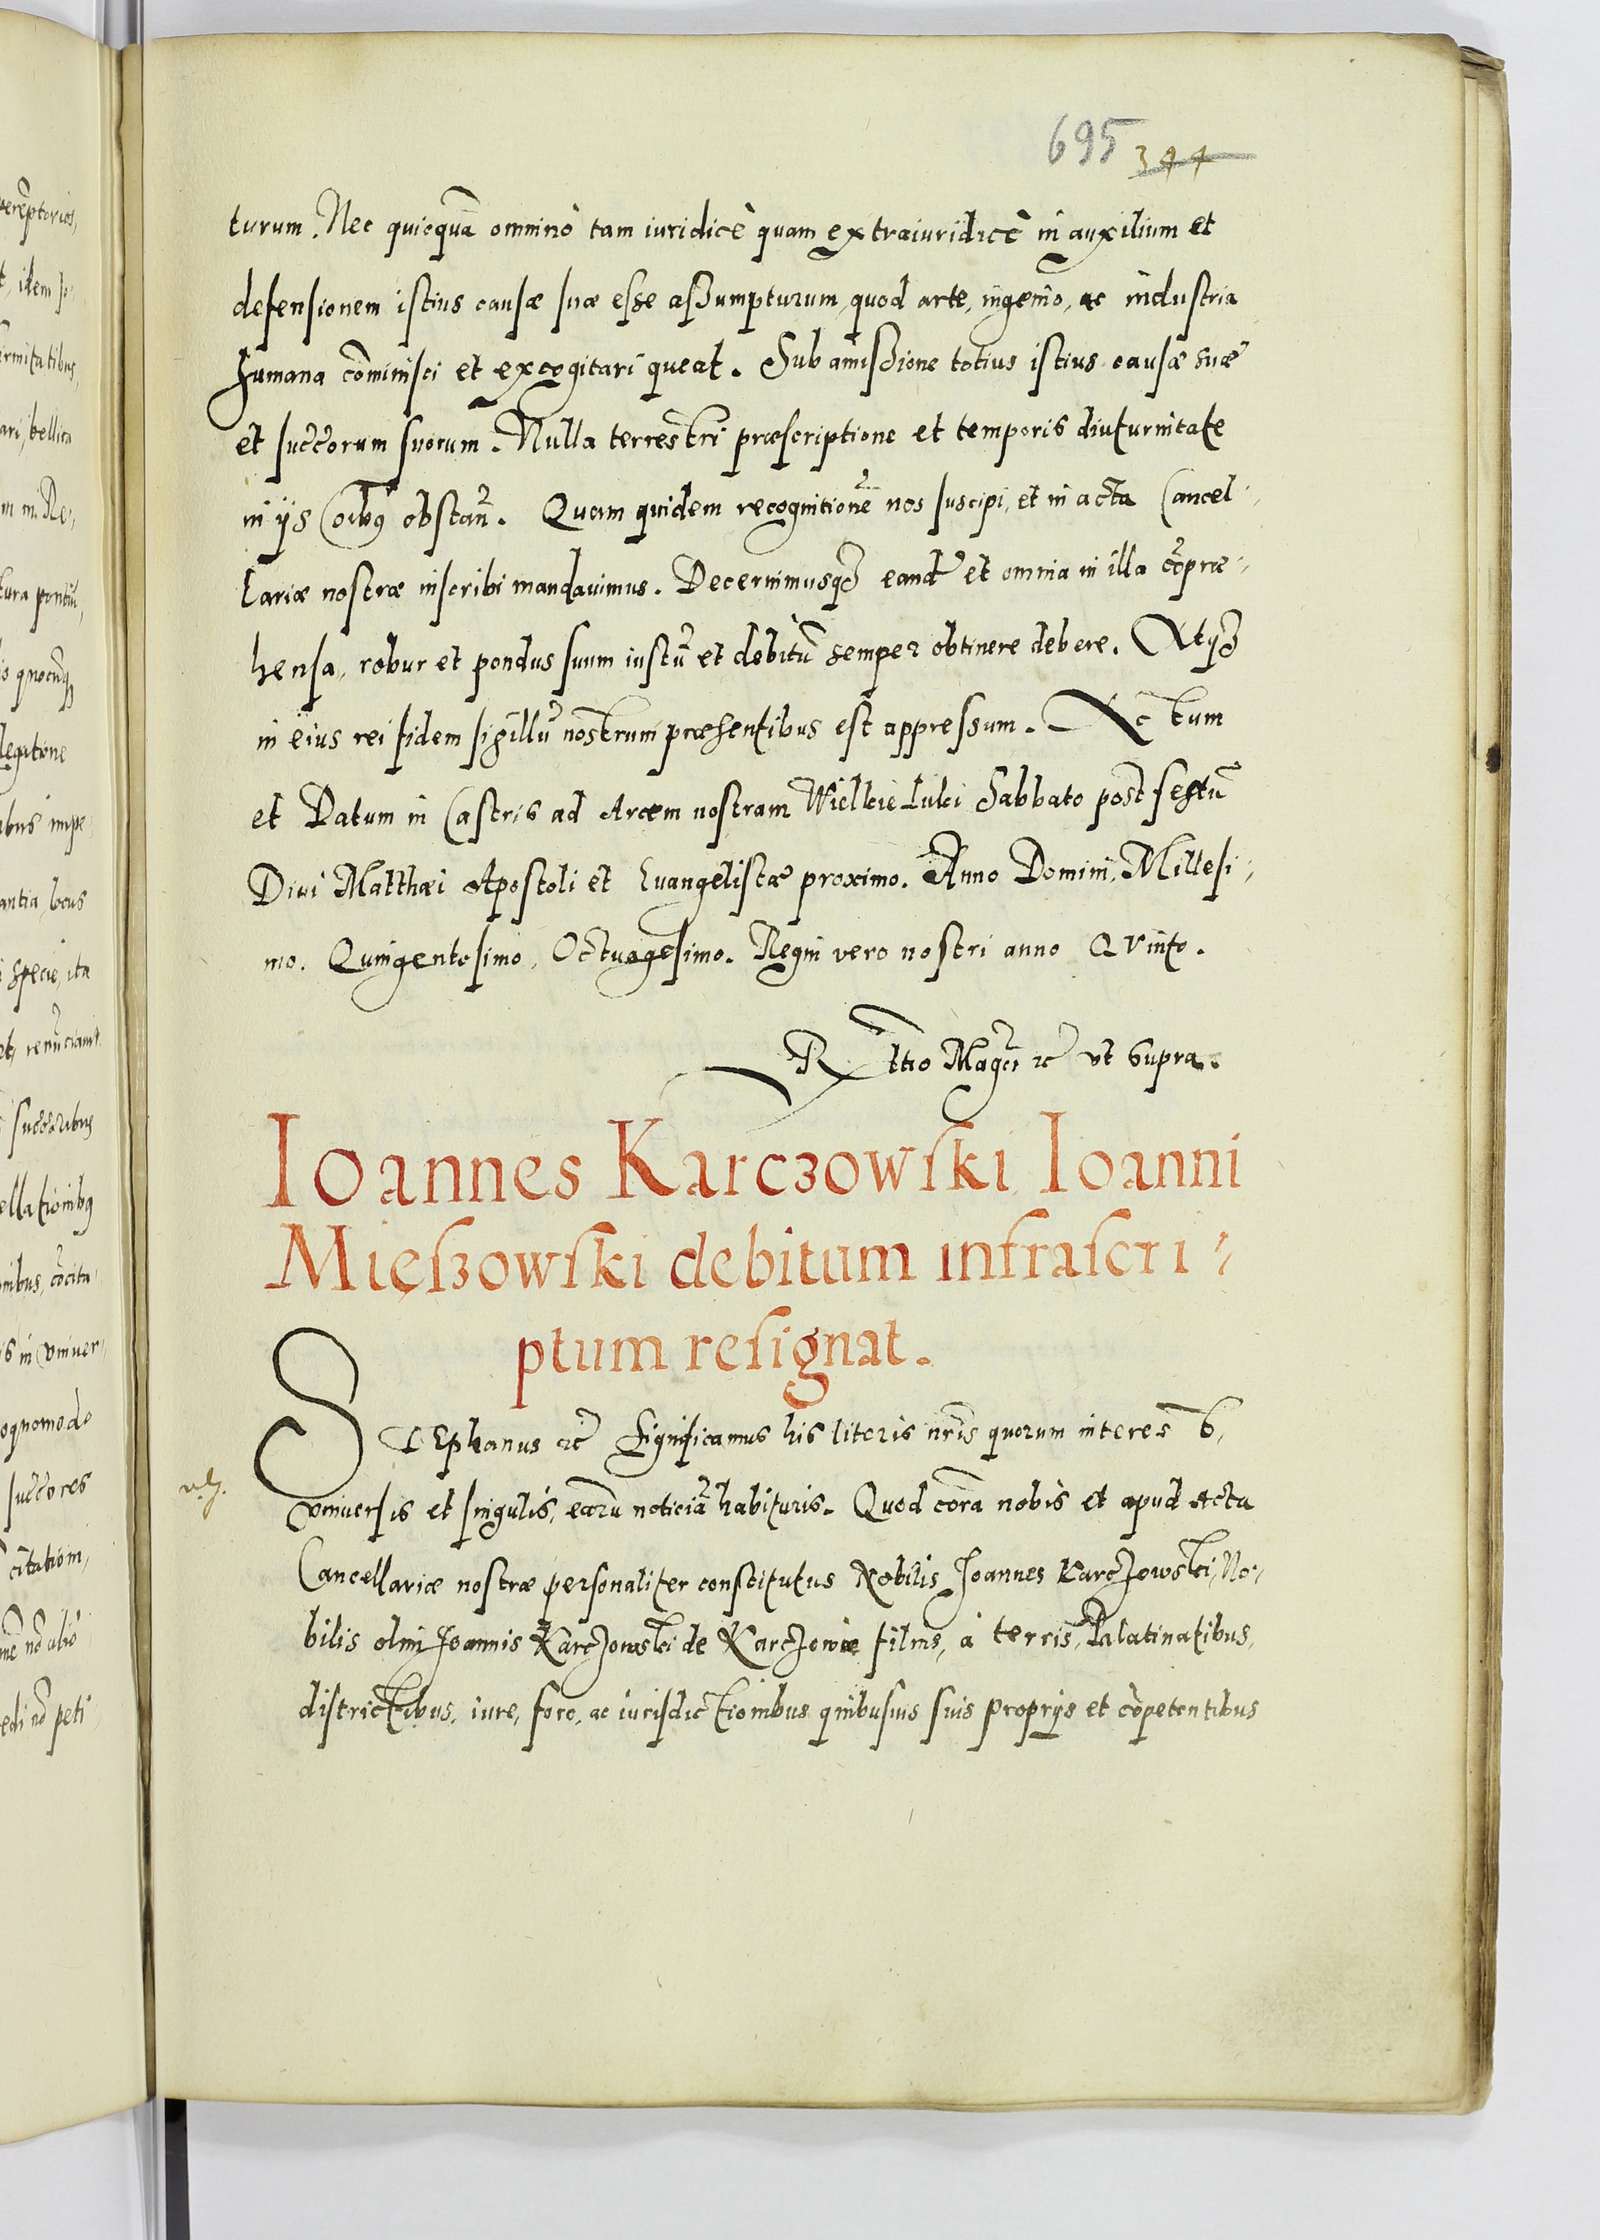 695 344
turum. Nec quicquã omninò tam iuridicè quam extraiuridicè in auxilium et
defensionem istius causæ suæ esse aßumpturum, quod arte, ingenio, ac industria
humana cõminisci et excogitari queat. Sub amißione totius istius causæ suæ
et succorum suorum. Nulla terrestri præscriptione et temporis diuturnitate
in ijs obstañ. Quam quidem recognitionẽ nos suscipi, et in acta Cancel-
lariæ nostræ inscribi mandauimus. Decernimusqʒ eand̃ et omnia in illa cõpræ-
hensa, robur et pondus suum iustũ et debitũ semper obtinere debere. Atqʒ
in eius rei fidem sigillũ nostrum præsentibus est appressum. Actum
et Datum in Castris ad Arcem nostram Wielkie Luki Sabbato post festũ
Diui Matthæi Apostoli et Euangelistæ proximo. Anno Domini, Millesi-
mo. Quingentesimo, Octuagesimo. Regni vero nostri anno Quinto.
Rltio Magci ꝛc̃ vt supra.
Ioannes Karczowski Ioanni
Mięszowski debitum infrascri-
ptum resignat.
Stephanus ꝛc̃ Significamus his literis nr̃is quorum interest,
vniuersis et singulis, earũ noticiã habituris. Quod corã nobis et apud Acta
Cancellariæ nostræ personaliter constitutus Nobilis Joannes Karczowski, No-
bilis olim Joannis Karczowski de Karczowie filius, à terris, Palatinatibus,
districtibus, iure, foro, ac iurisdictionibus quibusuis suis proprijs et cõpetentibus